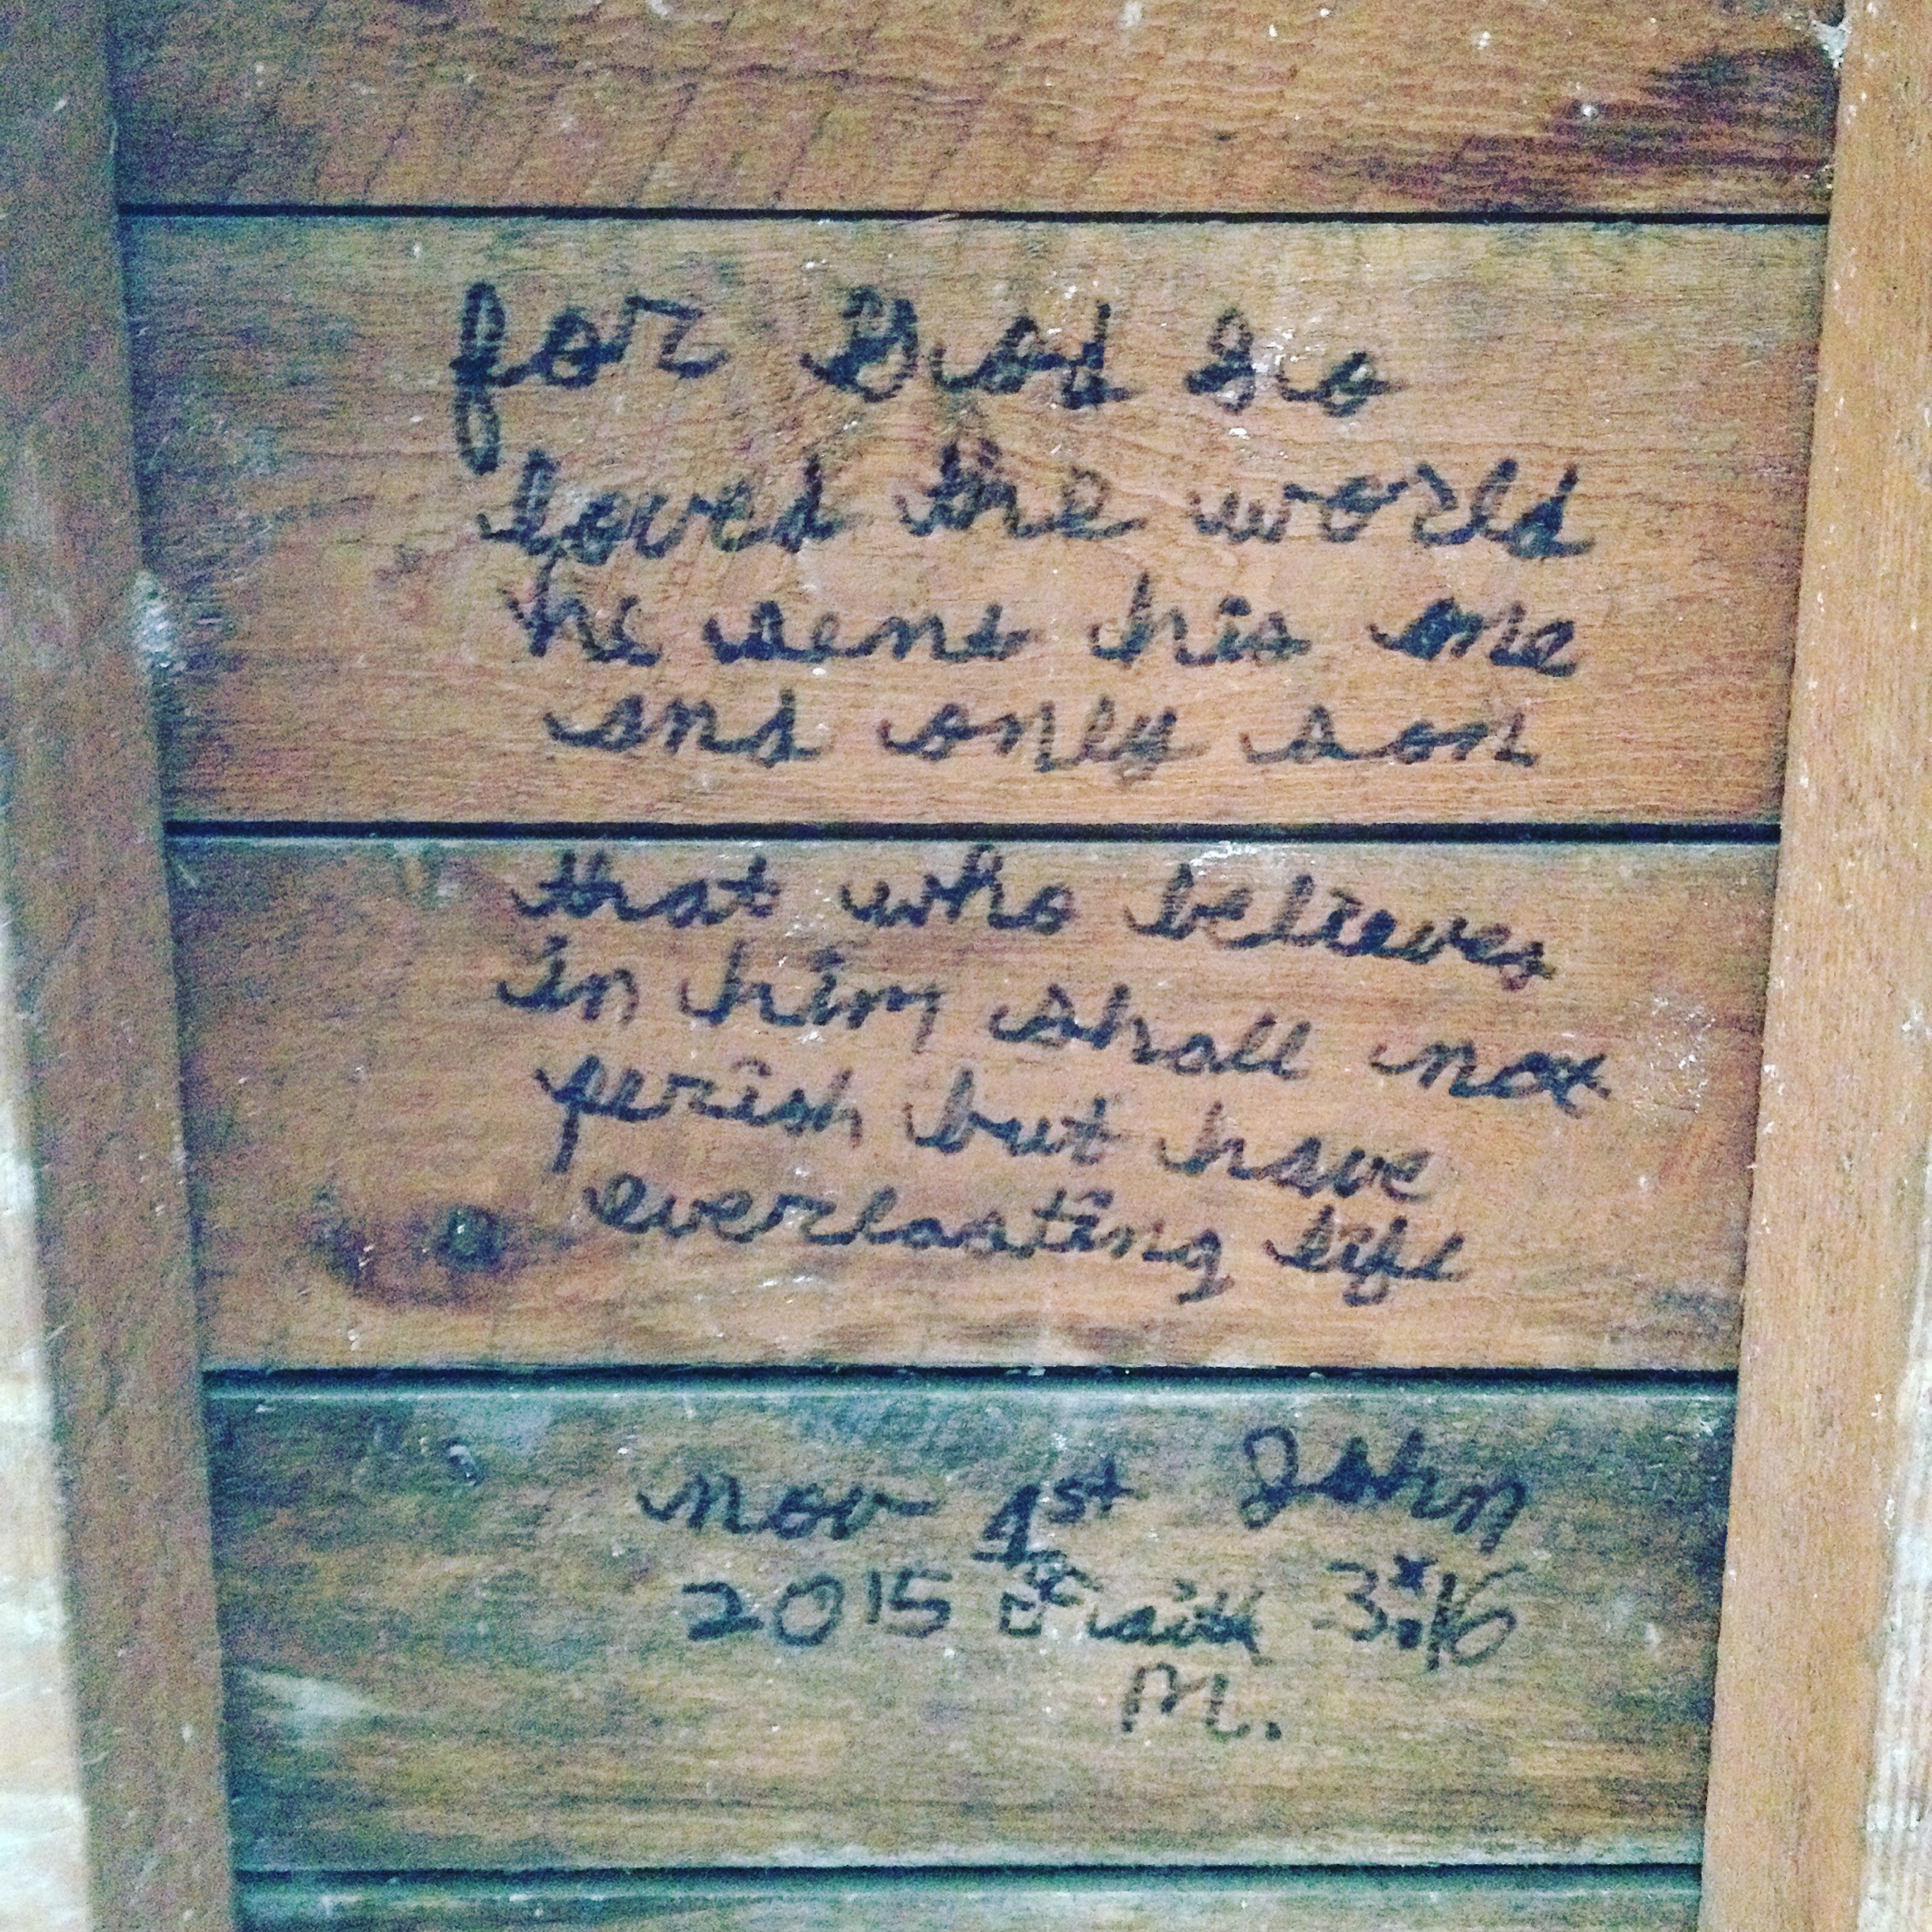 for God so
loved the world
he sent his one
and only son
that who believes
in him shall not
perish but have
everlasting life
nov 1st John
2015 Faith 3:16
M.